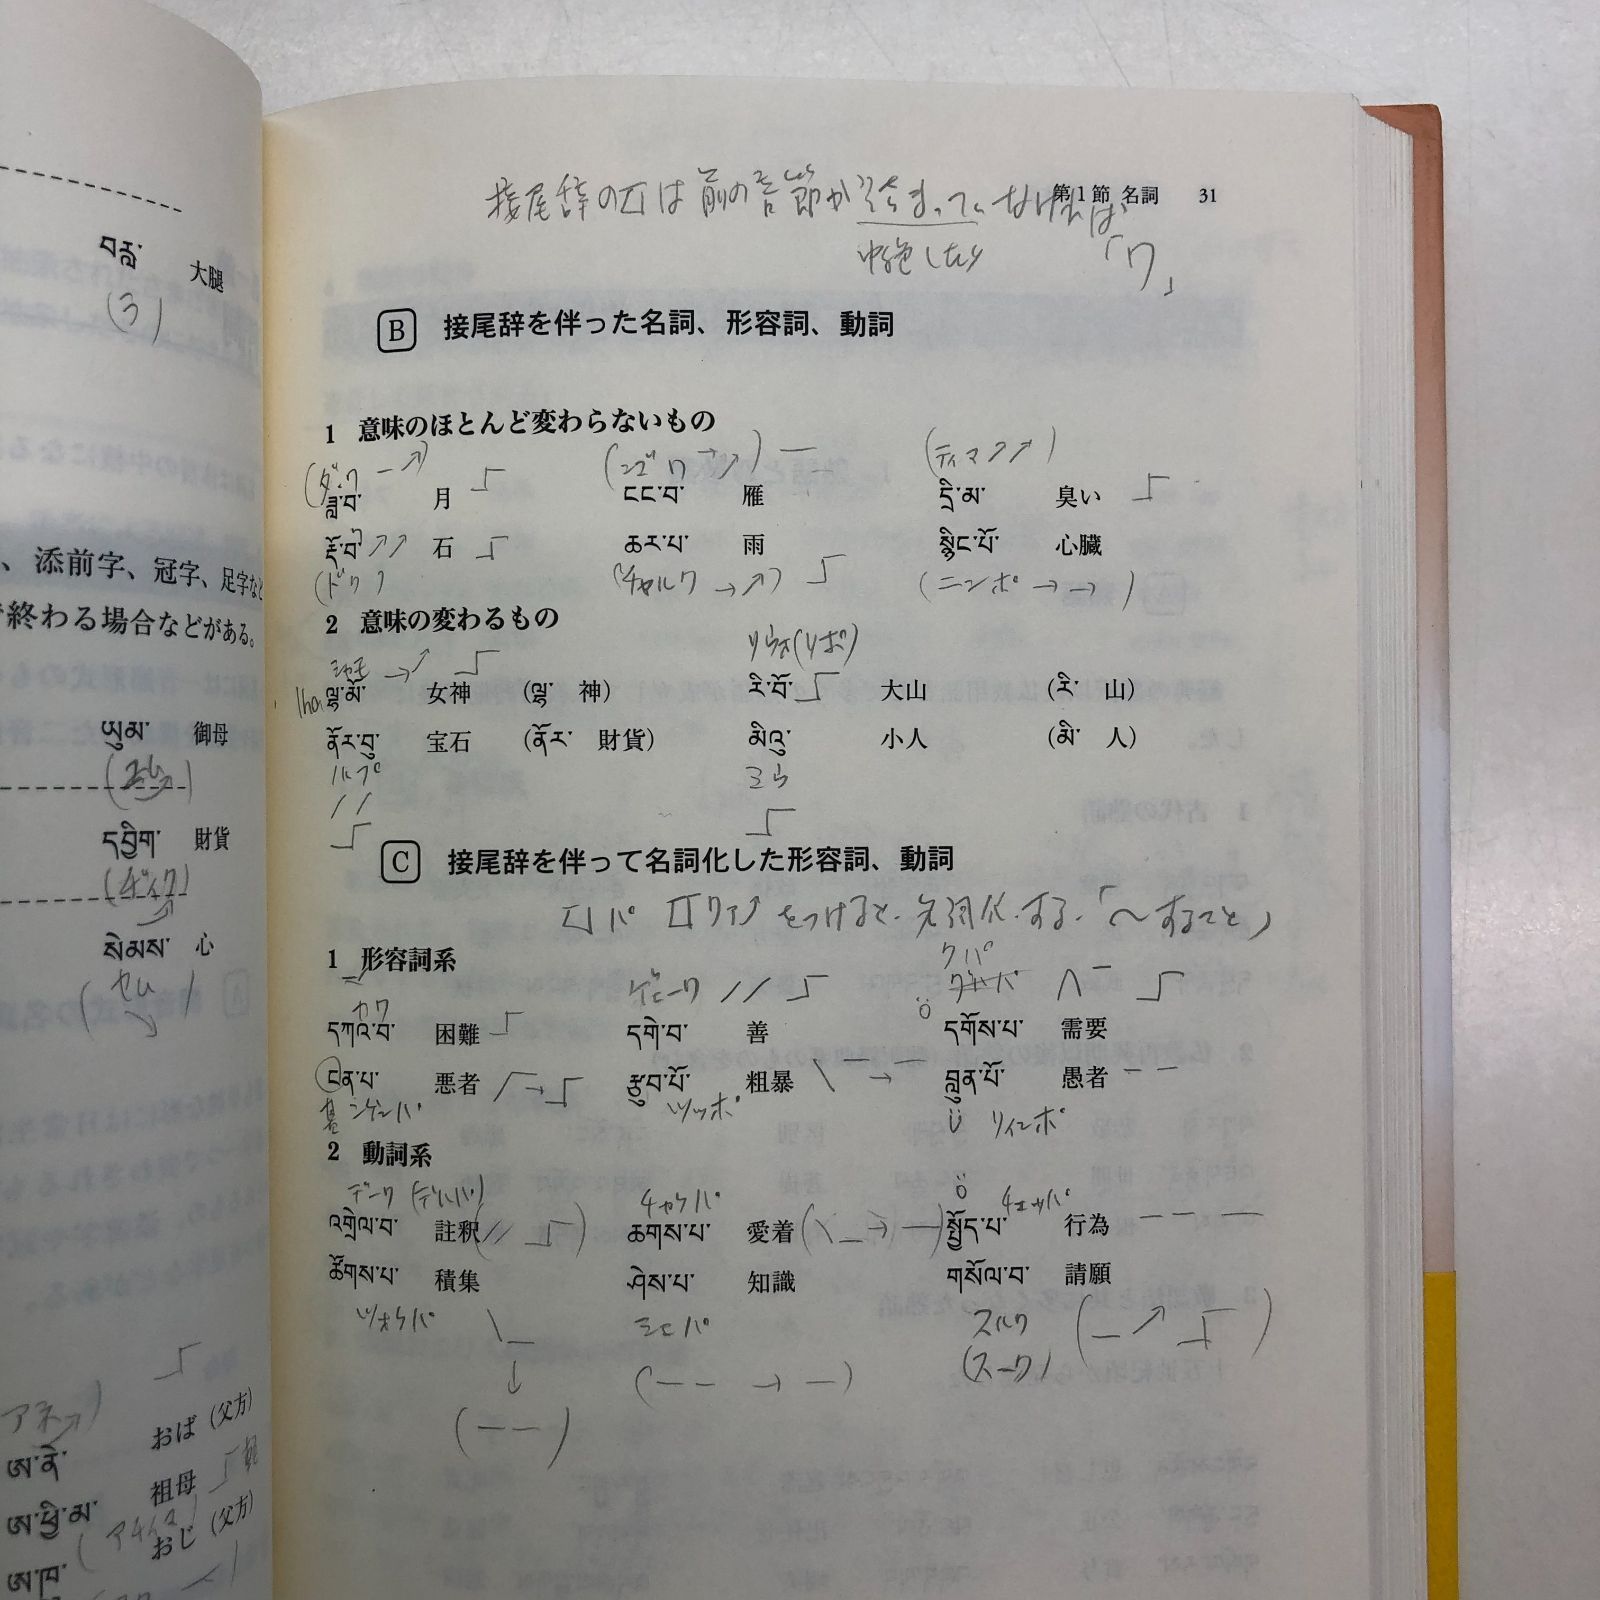 བརླ་ 大腿
(ラ)
、添前字、冠字、足字など
終わる場合などがある。
ཡུམ་ 御母
དབྱིག་ 財貨
སེམས་ 心
(セム)
アネ
ཨ་ནེ་ おば (父方)
ཨ་ཕྱི་མ་ 祖母
おじ (父方)
ཨ་ཁུ་
第1節 名詞 31
接尾辞の བ は 前の音節が詰まっていなければ
「ワ」
B 接尾辞を伴った名詞、形容詞、動詞
1 意味のほとんど変わらないもの
(ダワ →) (ンゴワ →↗) (ティマ ↗↗)
ཟླ་བ་ 月 ངང་བ་ 雁 དྲི་མ་ 臭い
རྡོ་བ་ ↗↗ 石 ཆར་པ་ 雨 སྙིང་པོ་ 心臓
(ドワ) (チャルワ →↗) (ニンポ →→)
2 意味の変わるもの
リウォ(リボワ)
lha ལྷ་མོ་ 女神 (ལྷ་ 神) རི་བོ་ 大山 (རི་ 山)
ནོར་བུ་ 宝石 (ནོར་ 財貨) མིའུ་ 小人 (མི་ 人)
ミウ
C 接尾辞を伴って名詞化した形容詞、動詞
པ パ བ ワ をつけると、名詞化する.「〜すること」
1 形容詞系
カワ ゲーワ クパ
དཀའ་བ་ 困難 དགེ་བ་ 善 ö དགོས་པ་ 需要
ངན་པ་ 悪者 རྩུབ་པོ་ 粗暴 བླུན་པོ་ 愚者
ンゲンパ ツッポ ü リィンポ
2 動詞系
デーワ チャケパ ö チェッパ
འགྲེལ་བ་ 註釈 ཆགས་པ་ 愛着 སྤྱོད་པ་ 行為
ཚོགས་པ་ 積集 ཤེས་པ་ 知識 གསོལ་བ་ 請願
ツォケパ シェパ スルワ
(スーワ)